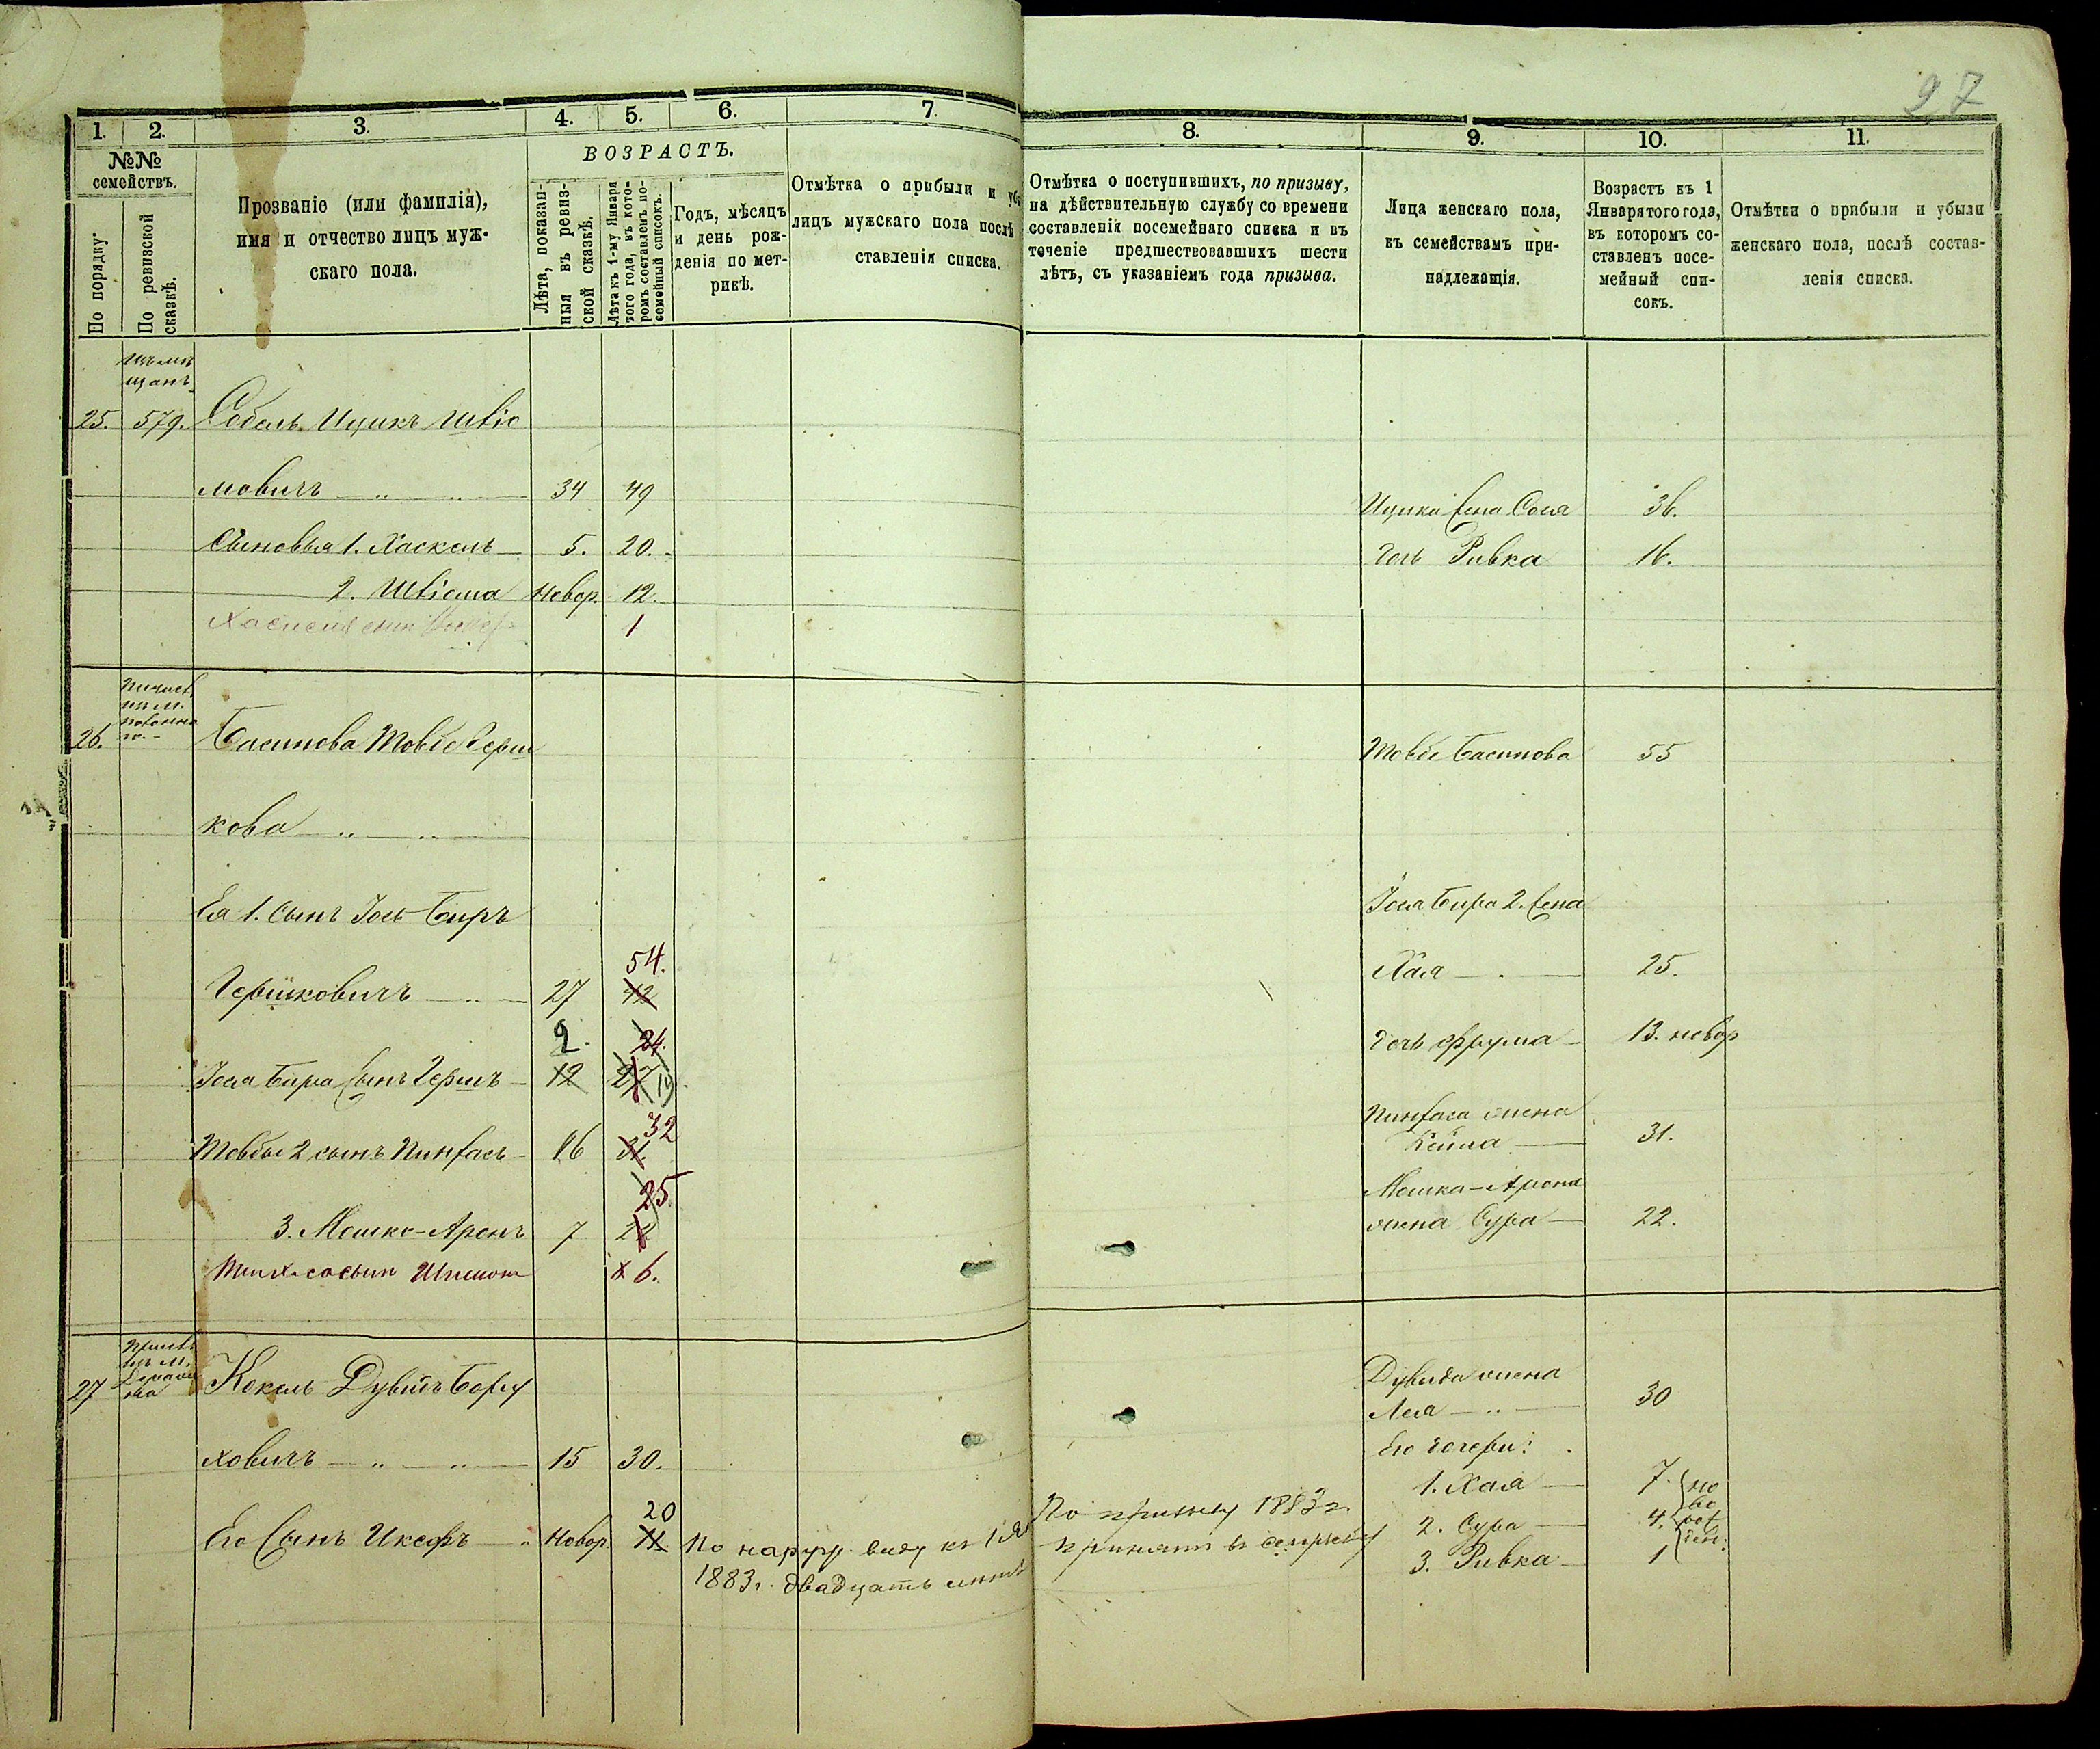 27
1. 2. 3. 4. 5. 6. 7. 8. 9. 10. 11.
№№ семействъ.
По порядку.
По ревизской сказкѣ.
Прозваніе (или фамилія),
имя и отчество лицъ муж-
скаго пола.
ВОЗРАСТЪ.
Лѣта, показан-
ныя въ ревиз-
ской сказкѣ.
Лѣта къ 1-му Января
того года, въ кото-
ромъ составленъ по-
семейный списокъ.
Годъ, мѣсяцъ
и день рож-
денія по мет-
рикѣ.
Отмѣтка о прибыли и
лицъ мужскаго пола послѣ
ставленія списка.
Отмѣтка о поступившихъ, по призыву,
на дѣйствительную службу со времени
составленія посемейнаго списка и въ
теченіе предшествовавшихъ шести
лѣтъ, съ указаніемъ года призыва.
Лица женскаго пола,
къ семействамъ при-
надлежащія.
Возрастъ къ 1
Января того года,
въ которомъ со-
ставленъ посе-
мейный спи-
сокъ.
Отмѣтки о прибыли и убыли
женскаго пола, послѣ состав-
ленія списка.
25. 579. Собель Ицикъ
мовичъ 34 49
Ицика Соня 36.
Сыновья 1. Хаскель 5. 20.
дочь Ривка 16.
2. Новор. 12.
сынъ 1
26. Басинова Товбе Герш
кова
Товбе Басинова 55
Ея 1. Сынъ Іось Беръ
Іося Бера 2. жена
54.
Гершковичъ 27 42
Хая 25.
2. 24.
Іося Бера Сынъ Гершъ 12 27 19
дочь Фрума 13. новор
32
Товбы 2 сынъ Пинхасъ 16 31.
Пинхаса жена
Кейла 31.
25.
3. Мошко-Аронъ 7 22
Мошка-Арона
жена Сура 22.
сынъ х 6.
27 Кокель Дувидъ Бору
Дувида жена
Лея 30
ховичъ 15 30.
Его дочери:
1. Хая 7.
2. Сура 4.
3. Ривка 1
ново
рож
ден:
20
Его Сынъ Новор. 11
По наруж. виду къ 1 Янв
1883 г. двадцать лѣтъ
По призыву 1883 г.
принятъ въ службу